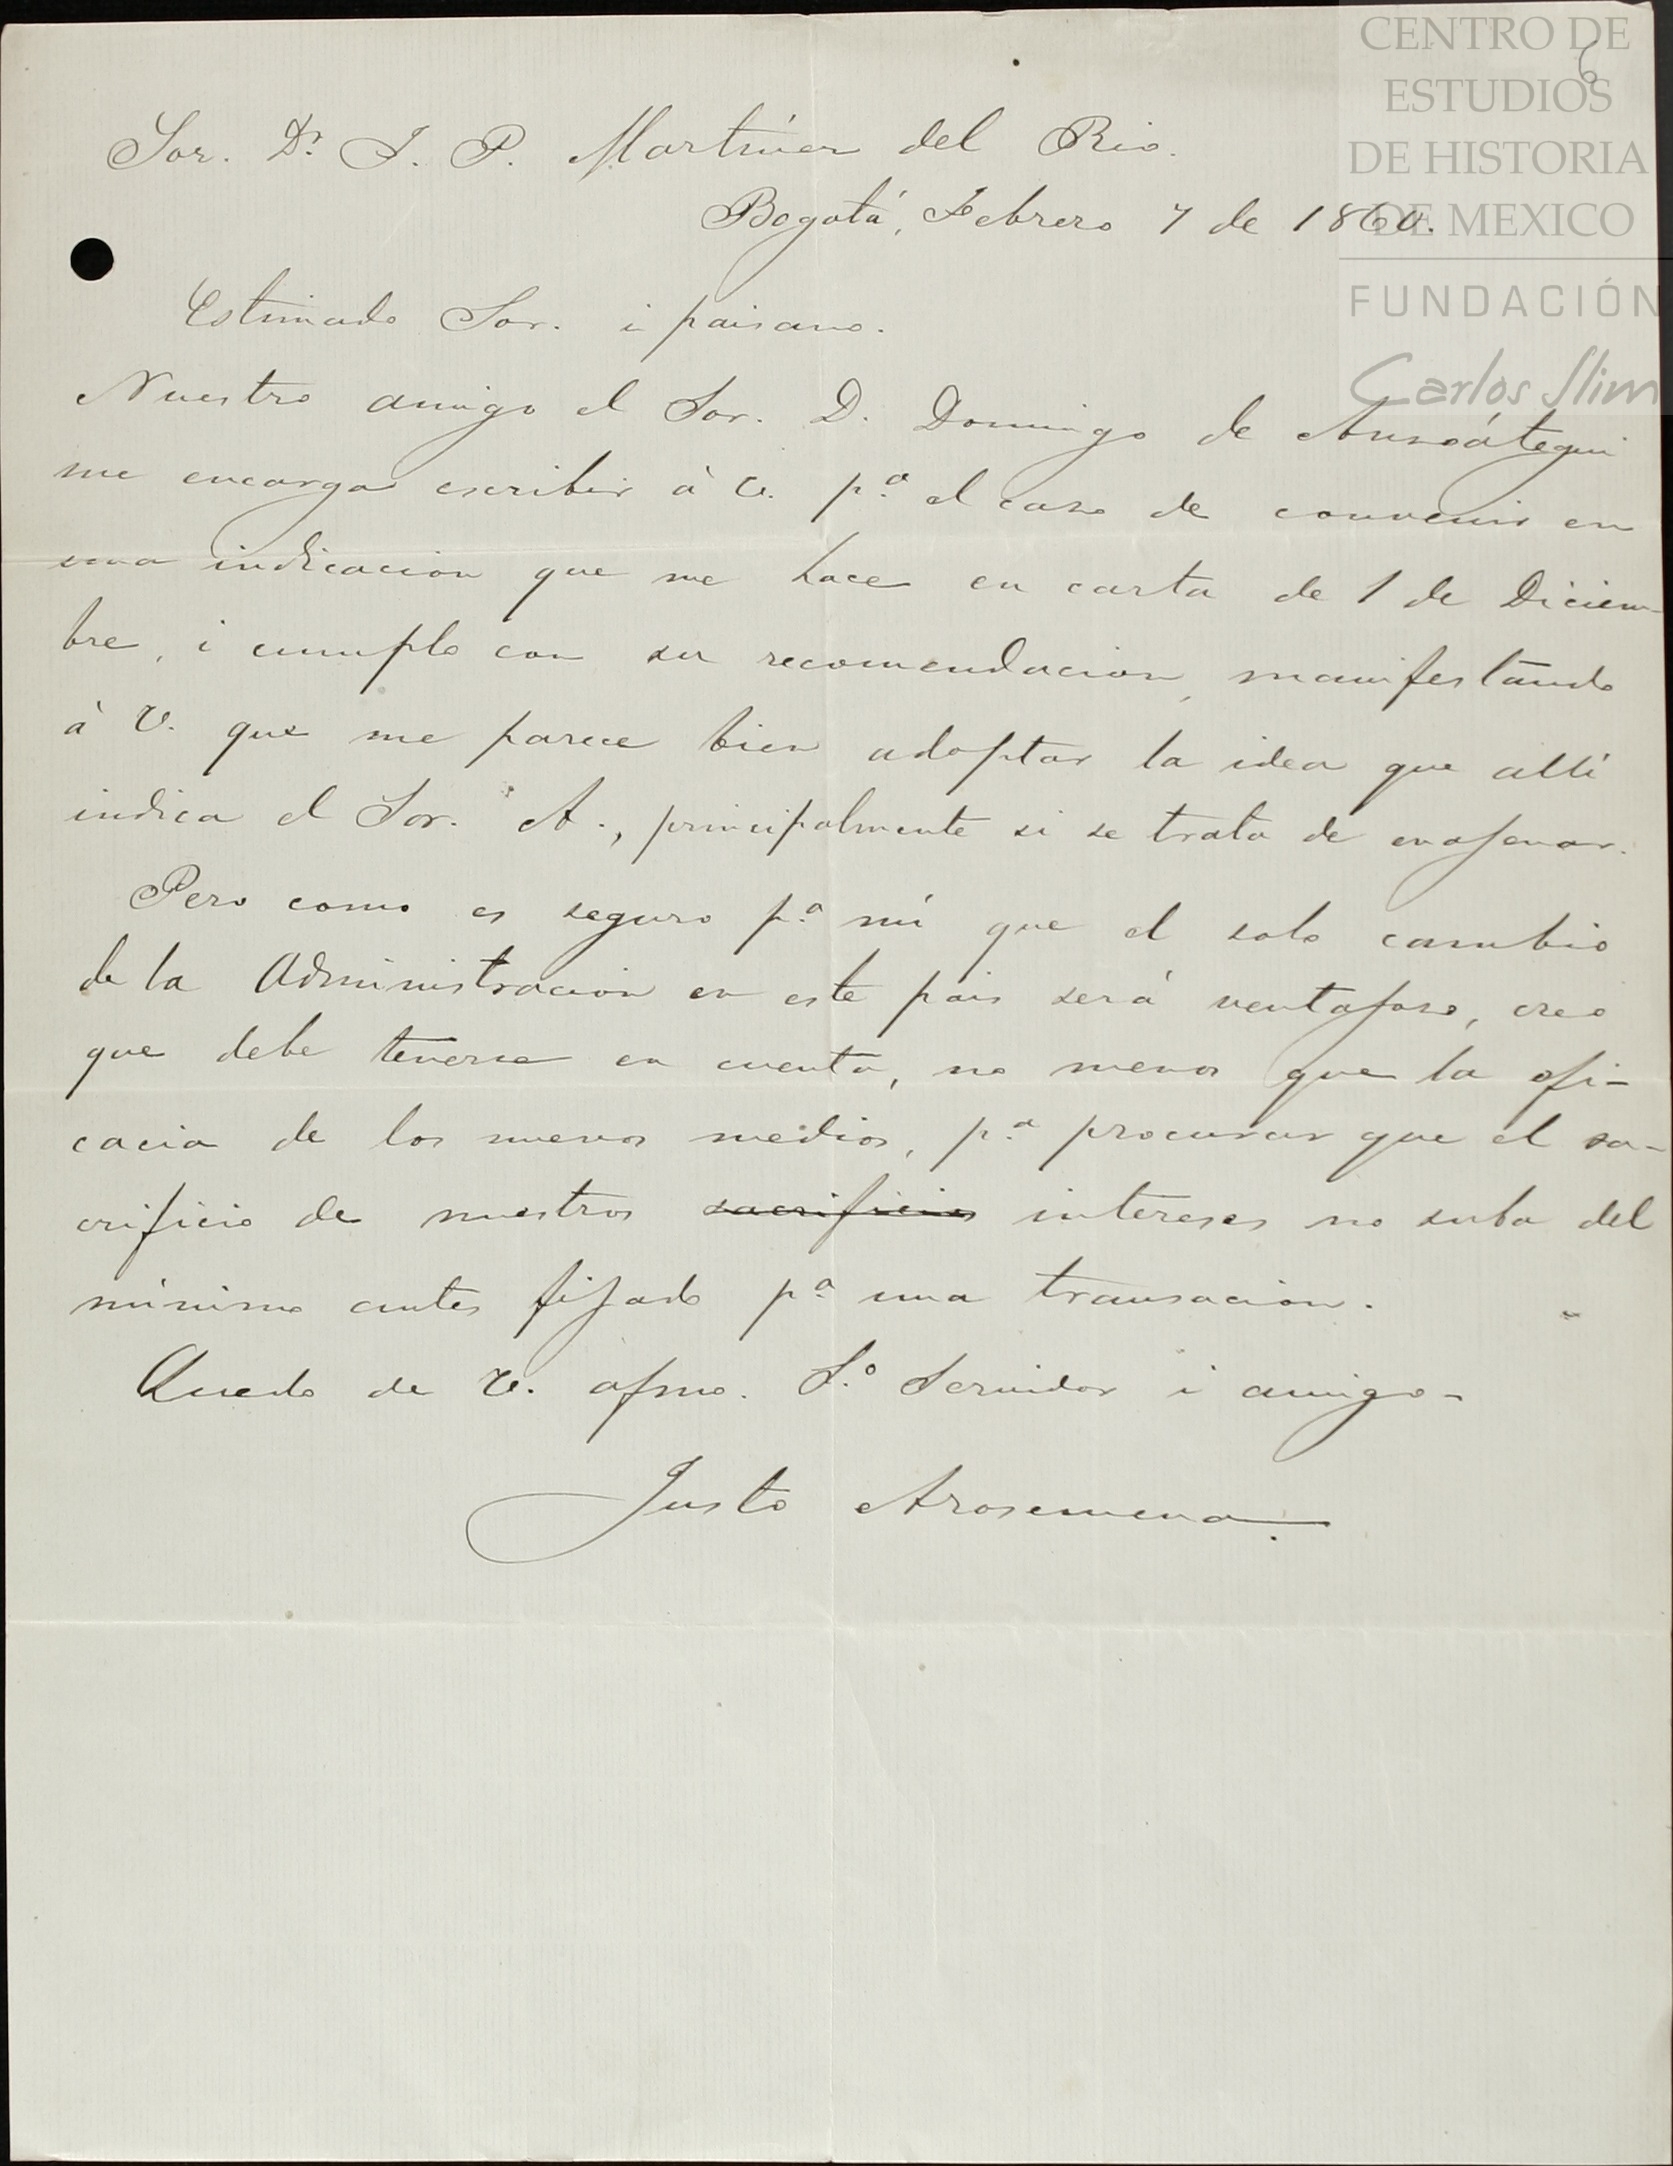 CENTRO DE
ESTUDIOS
DE HISTORIA
DE MEXICO
FUNDACIÓN
Carlos Slim
6
Sor. Dr. J. P. Martínez del Rio.
Bogotá, Febrero 7 de 1860.
Estimado Sor. i paisano.
Nuestro amigo el Sor. D. Domingo de Ansoátegui
me encarga escribir à V. pª el caso de convenir en
una indicacion que me hace en carta de 1 de Diciem-
bre, i cumplo con su recomendacion, manifestando
à V. que me parece bien adoptar la idea que allí
indica el Sor. A., principalmente si se trata de enajenar.
Pero como es seguro pª mí que el solo cambio
de la Administracion en este pais será ventajoso, creo
que debe tenerse en cuenta, no menos que la efi-
cacia de los nuevos medios, pª procurar que el sa-
crificio de nuestros sacrificios intereses no suba del
mínimo antes fijado pª una transacion.
Quedo de V. afmo. S.º Servidor i amigo-
Justo Arosemena.